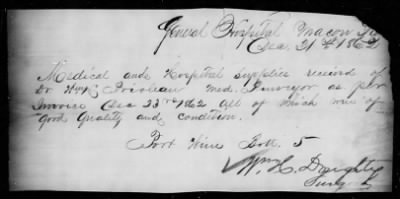 General Hospital Macon Ga
Dec. 31st 1862
Medical and Hospital supplies received of
Dr Wm H Prioleau Med. Purveyor as per
Invoice Dec 23rd 1862 All of which were of
good quality and condition.
Port Wine Bott. 5
Wm. L.
Surg